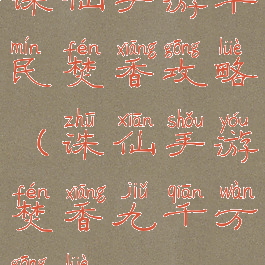 诛仙手游平
mín fén xiāng gōng lüè
民焚香攻略
zhū xiān shǒu yóu
(诛仙手游
fén xiāng jiǔ qiān wàn
焚香九千万
gōng lüè